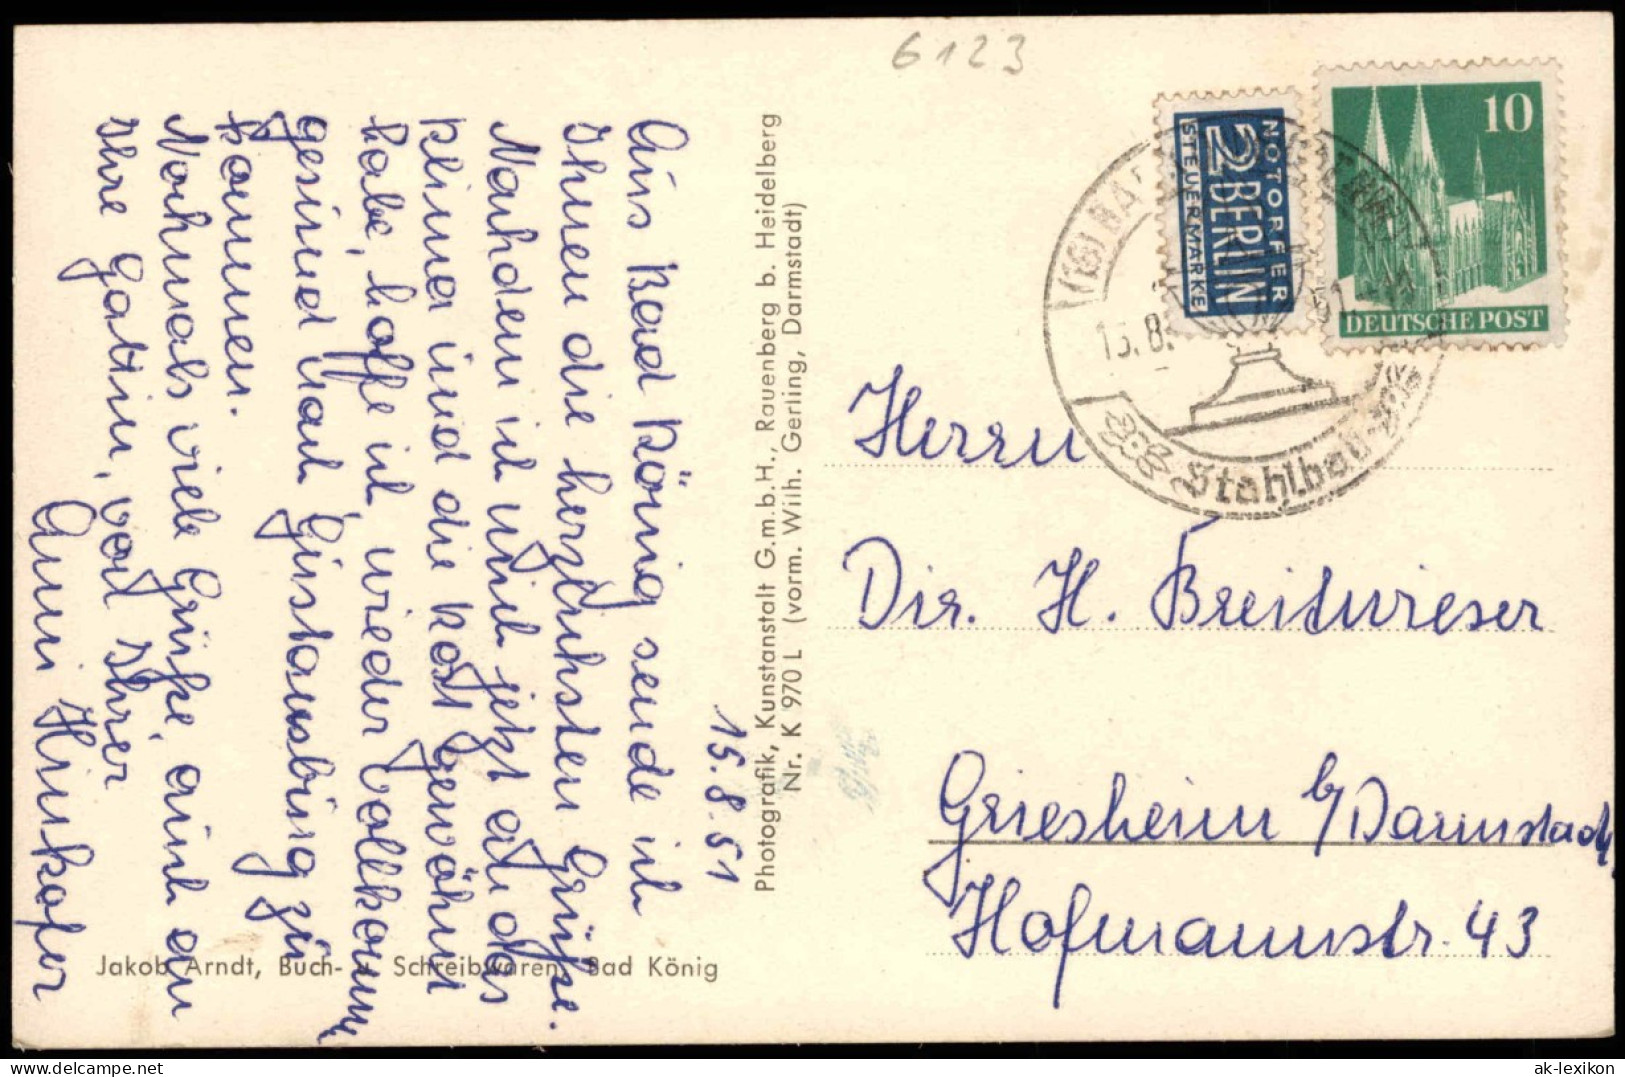 6123
15.8.51
Aus Bad König sende ich
Ihnen die herzlichsten Grüße.
Nachdem ich mich jetzt an das
Klima und die Kost gewöhnt
habe, hoffe ich, wieder vollkomm.
gesund nach Gustavsburg zu
kommen.
Nochmals viele Grüße, auch an
Ihre Gattin, von Ihrer
Anni Hinkofer
Jakob Arndt, Buch- u. Schreibwaren, Bad König
Photografik, Kunstanstalt G.m.b.H., Rauenberg b. Heidelberg
Nr. K 970 L (vorm. Wilh. Gerling, Darmstadt)
NOTOPFER
2 BERLIN
STEUERMARKE
10
DEUTSCHE POST
(16) BAD
15.8.
51
Stahlbad
Herrn
Dir. H. Breitwieser
Griesheim b/Darmstadt
Hofmannstr. 43
ak-lexikon